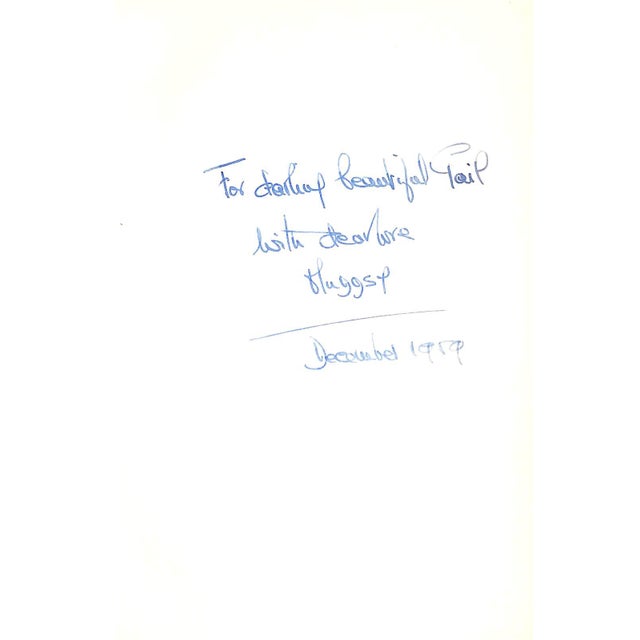 For darling beautiful Gail
with dear love
Huggsy
December 1959